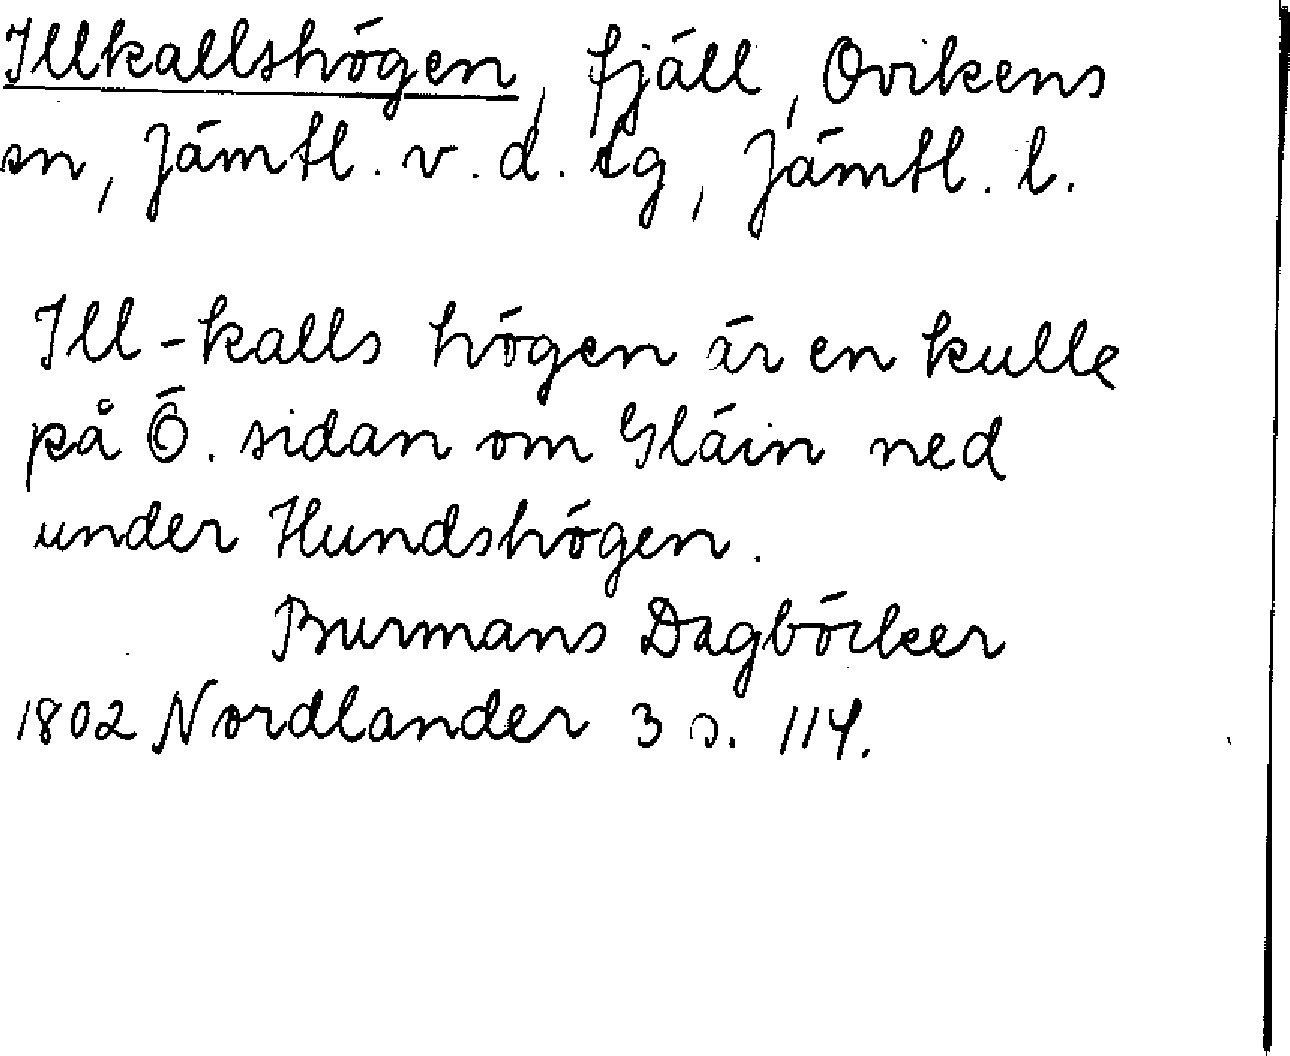 Illkallshögen, fjäll, Ovikens
sn, Jämtl. v. d. tg, Jämtl. l.
Ill-kalls högen är en kulle
på Ö. sidan om Gläin ned
under Hundshögen.
Burmans Dagböcker
1802 Nordlander 3 s. 114.